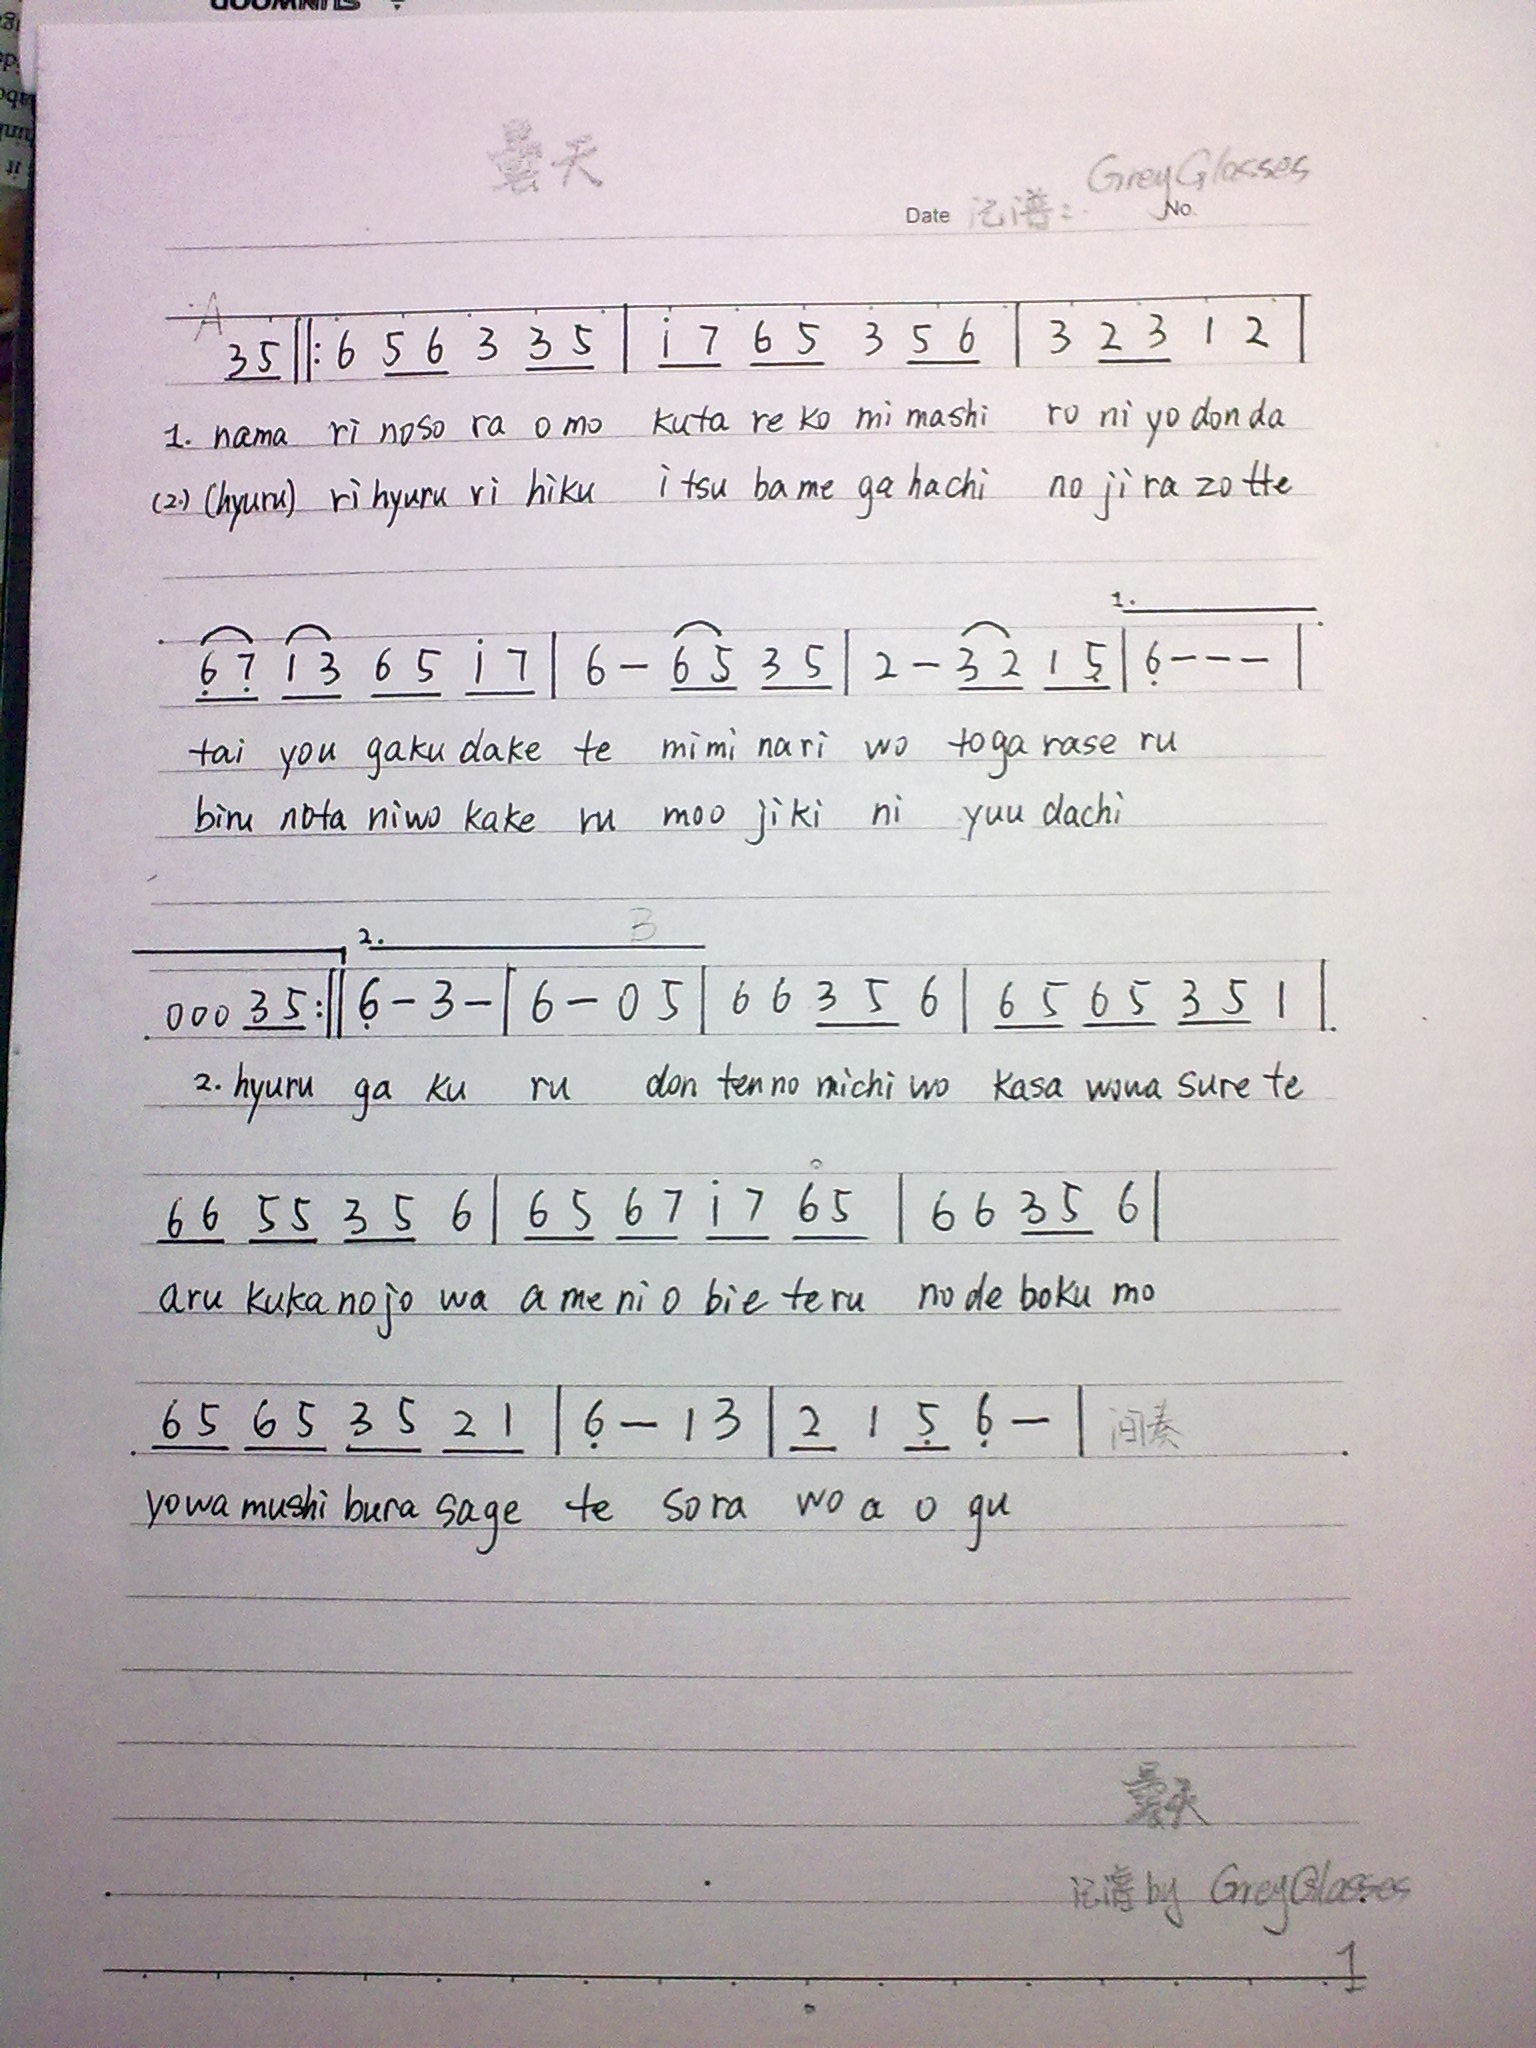 SUNWOOD
曇天
GreyGlasses
Date 记谱: No.
A
35 ‖: 6 56 3 35 | i7 65 3 56 | 3 23 1 2 |
1. nama ri noso ra omo kuta re ko mi mashi ro ni yo don da
(2.) (hyuru) ri hyuru ri hiku i tsu ba me ga hachi no ji ra zo tte
1.
6̣7̣ 13 65 i7 | 6 - 65 35 | 2 - 32 15̣ | 6̣ - - - |
tai you gaku dake te mimi nari wo toga rase ru
biru nota niwo kake ru moo jiki ni yuu dachi
2. B
0 0 0 35 :‖ 6̣ - 3 - | 6 - 0 5 | 6 6 35 6 | 65 65 35 1 |
2. hyuru ga ku ru don ten no michi wo kasa wowa sure te
66 55 35 6 | 65 67 i7 65 | 6 6 35 6 |
aru kuka nojo wa a me ni o bie teru no de boku mo
65 65 35 21 | 6̣ - 1 3 | 2 1 5̣ 6̣ - | 间奏
yowa mushi bura sage te sora wo a o gu
曇天
记谱 by GreyGlasses
1